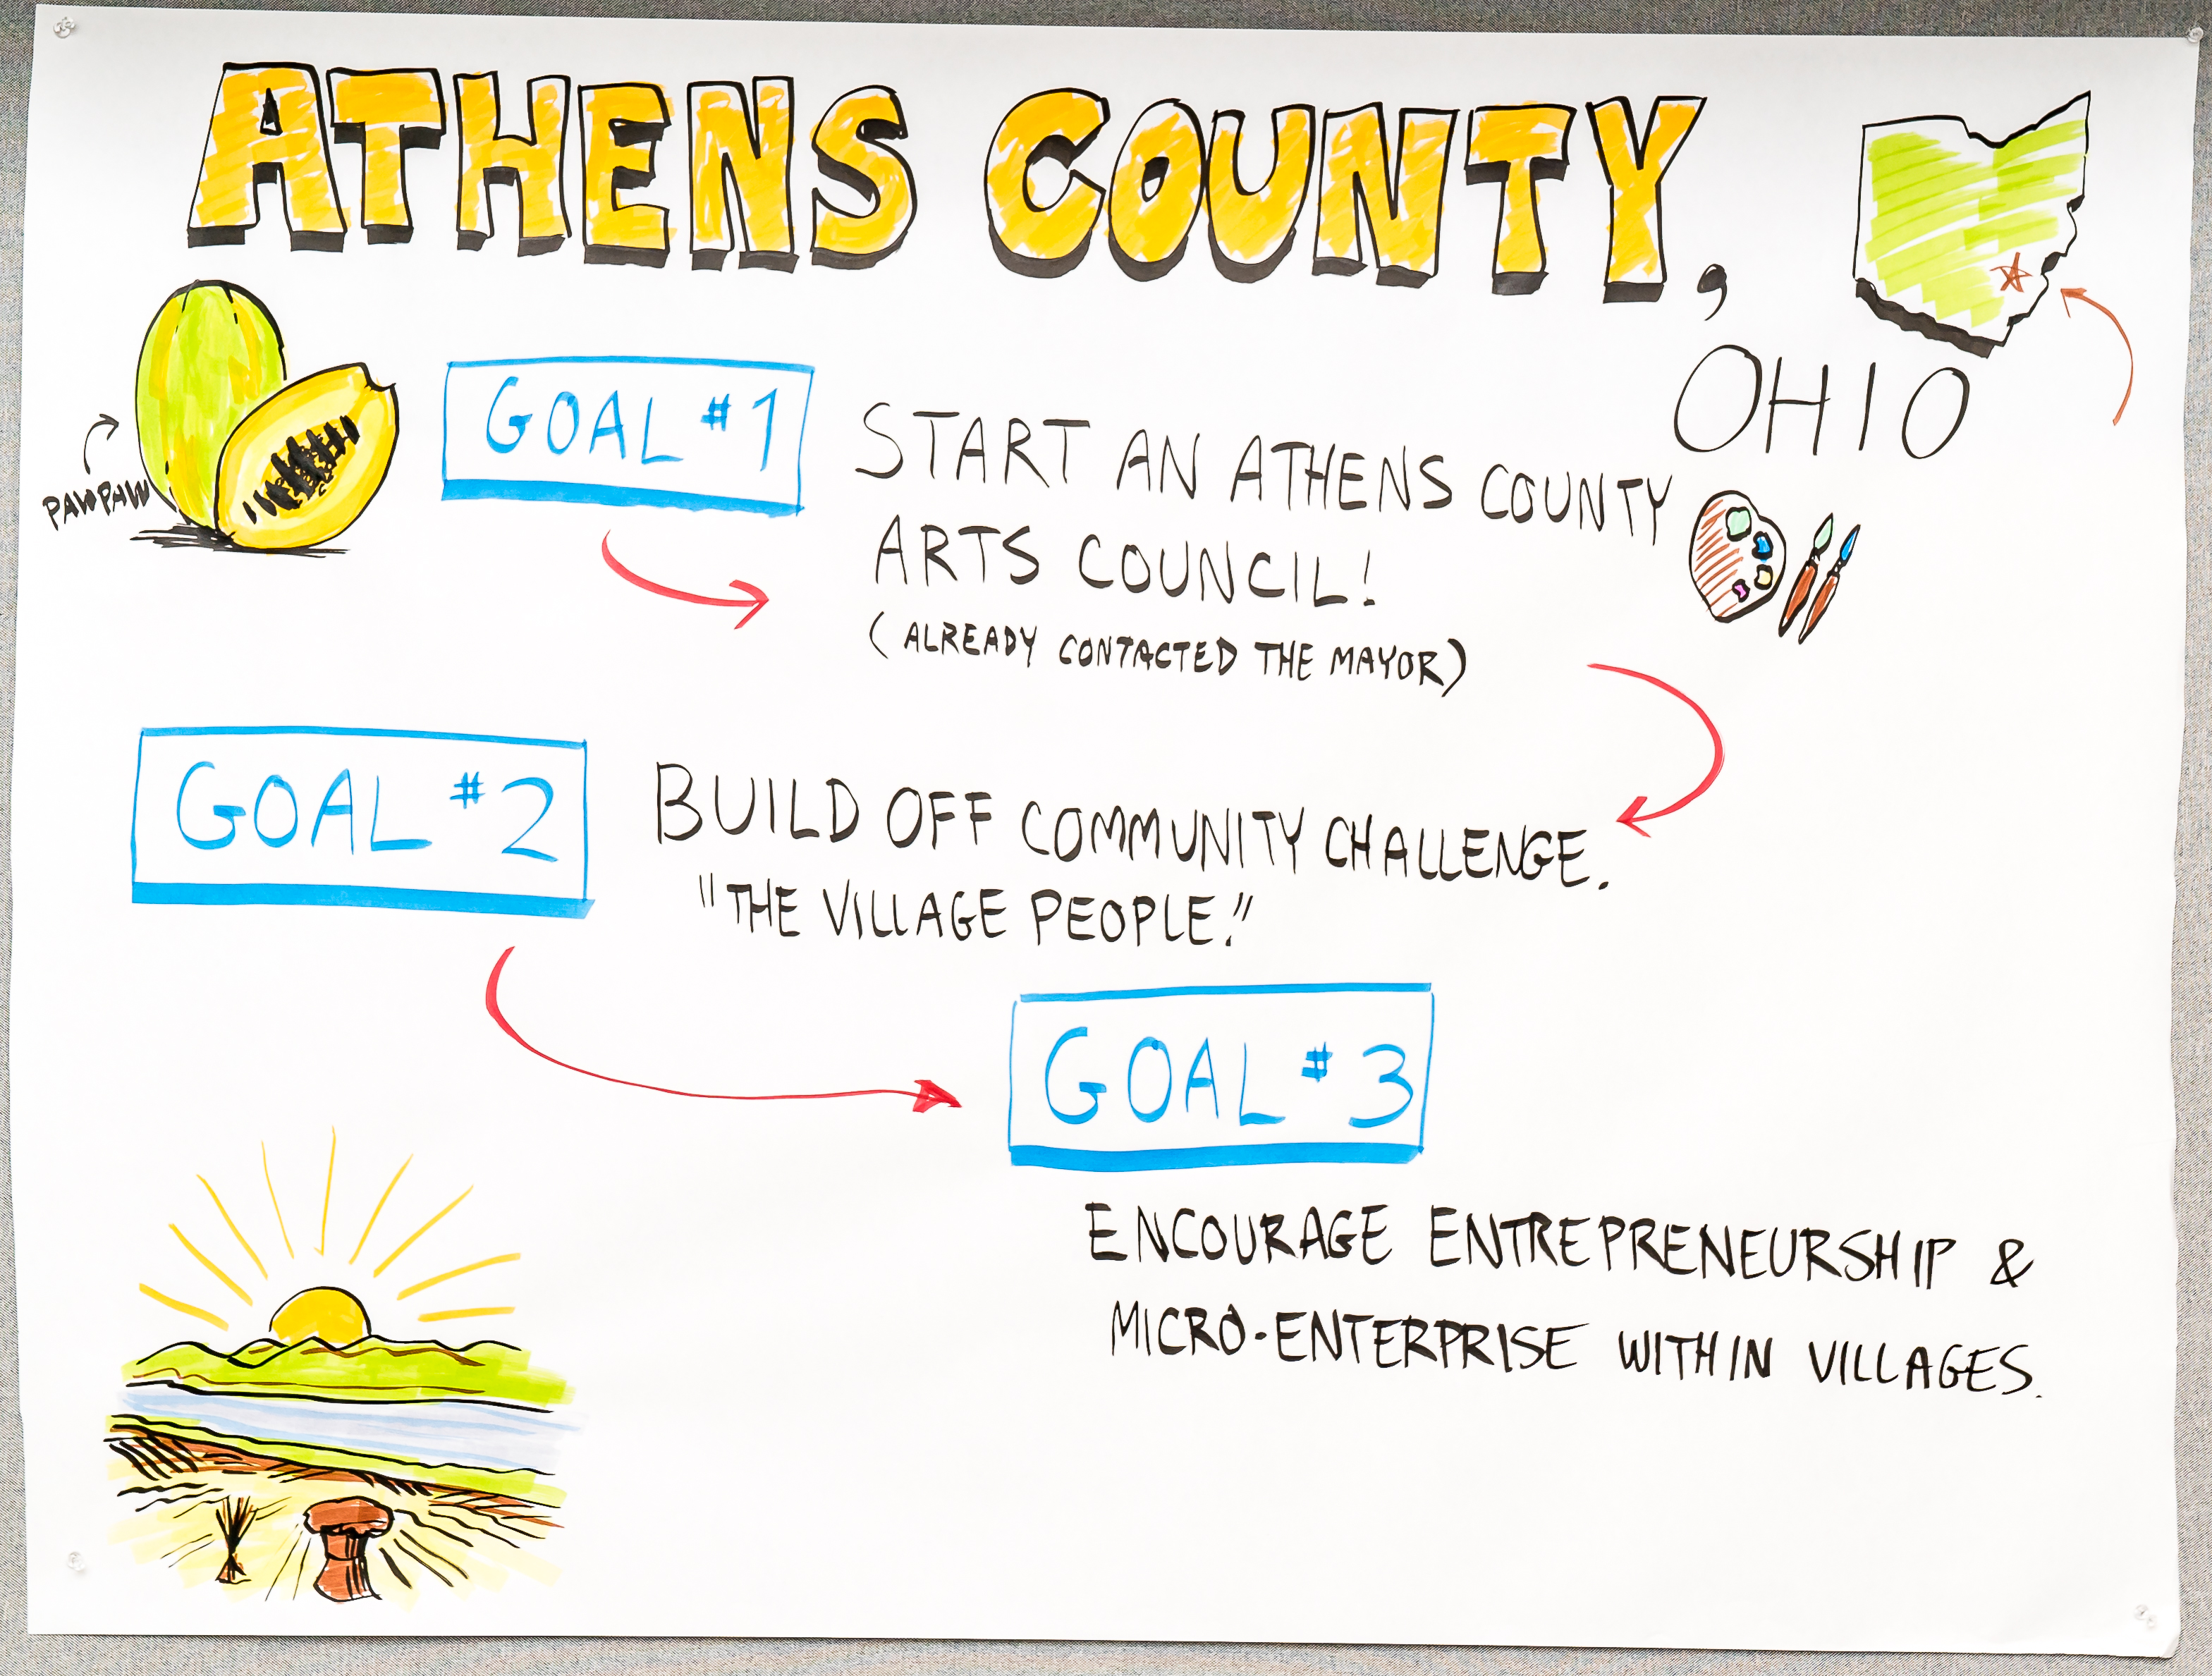 ATHENS COUNTY,
OHIO
PAWPAW
GOAL #1
START AN ATHENS COUNTY
ARTS COUNCIL!
(ALREADY CONTACTED THE MAYOR)
GOAL #2
BUILD OFF COMMUNITY CHALLENGE.
"THE VILLAGE PEOPLE."
GOAL #3
ENCOURAGE ENTREPRENEURSHIP &
MICRO-ENTERPRISE WITHIN VILLAGES.